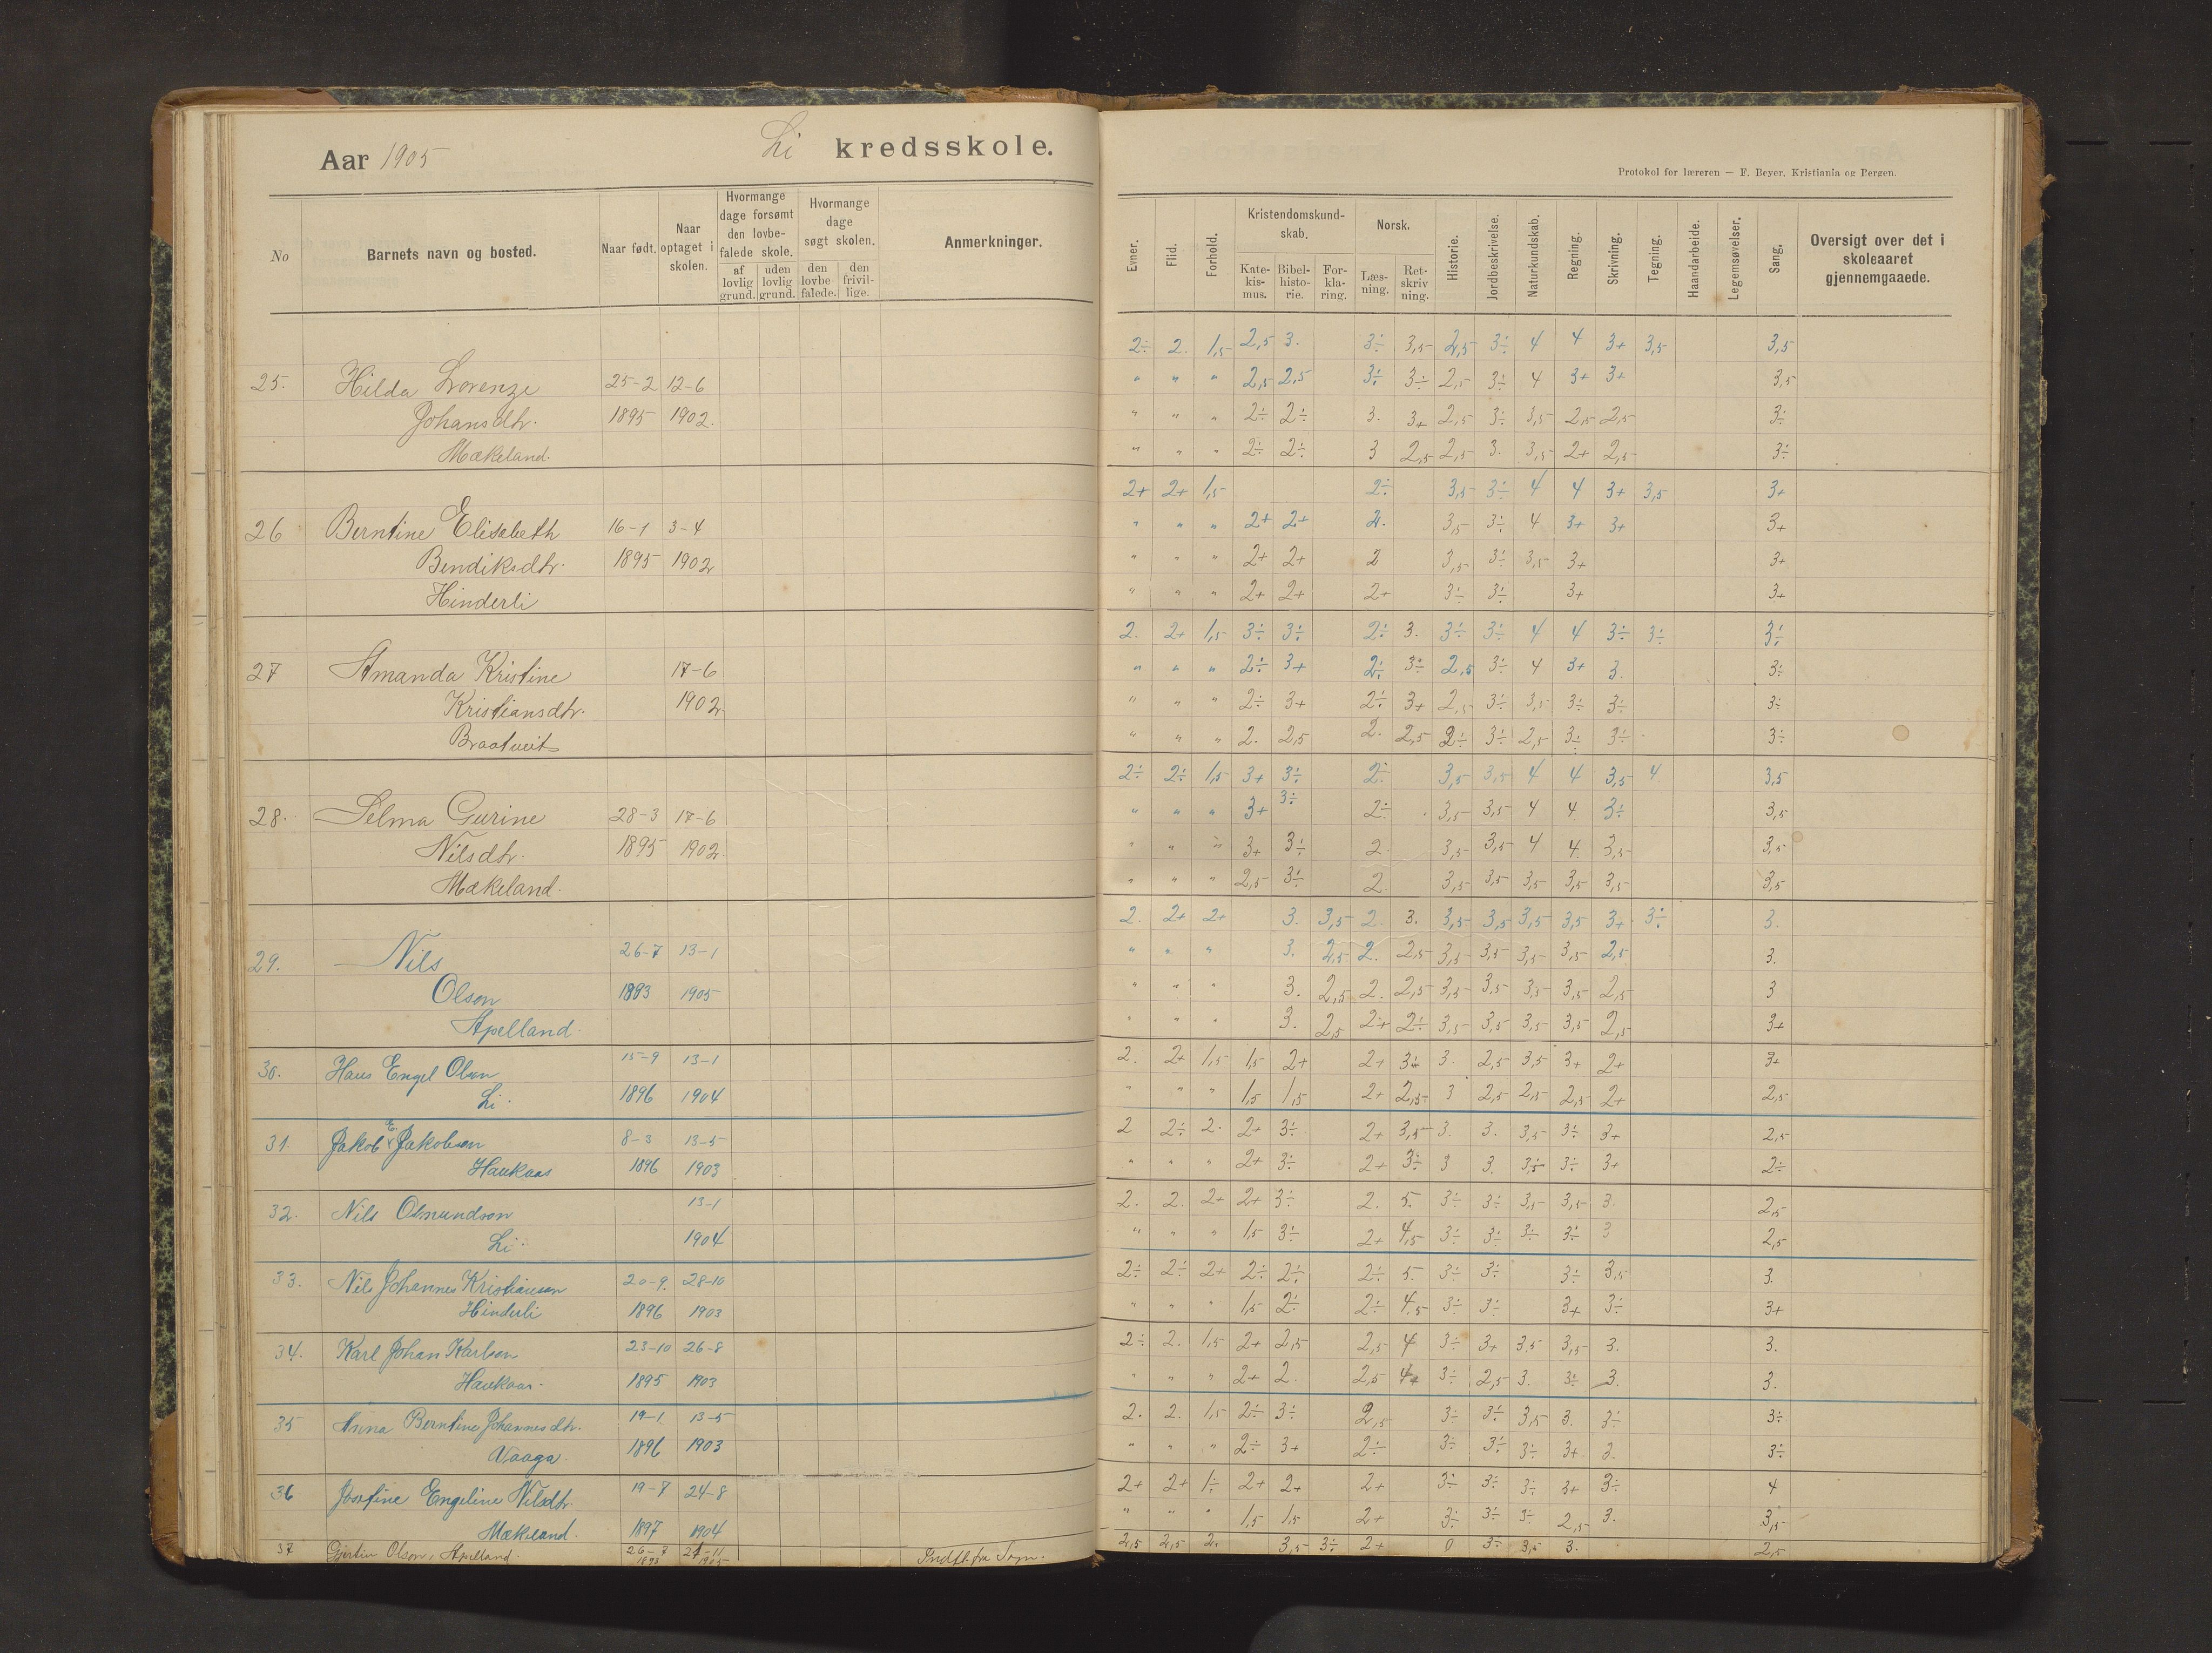 Aar 1905 Li kredsskole.
Protokol for læreren — F. Beyer, Kristiania og Bergen.
No
Barnets navn og bosted.
Naar født.
Naar optaget i skolen.
Hvormange dage forsømt den lovbefalede skole.
af lovlig grund.
uden lovlig grund.
Hvormange dage søgt skolen.
den lovbefalede.
den frivillige.
Anmerkninger.
Evner.
Flid.
Forhold.
Kristendomskundskab.
Katekismus.
Bibelhistorie.
Forklaring.
Norsk.
Læsning.
Retskrivning.
Historie.
Jordbeskrivelse.
Naturkundskab.
Regning.
Skrivning.
Tegning.
Haandarbeide.
Legemsøvelser.
Sang.
Oversigt over det i skoleaaret gjennemgaaede.
2÷ 2. 1,5 2,5 3. 3÷ 3,5 2,5 3÷ 4 4 3+ 3,5 3,5
25. Hilda Lorenze 25-2 12-6 " " " 2,5 2,5 3÷ 3÷ 2,5 3÷ 4 3+ 3+ 3,5
Johansdtr. 1895 1902. " " " 2÷ 2÷ 3. 3+ 2,5 3÷ 3,5 2,5 2,5 3÷
Mækeland. " " " 2÷ 2÷ 3 2,5 2,5 3. 3,5 2+ 2,5 3÷
2+ 2+ 1,5 2÷ 3,5 3÷ 4 4 3+ 3,5 3+
26 Berntine Elisabeth 16-1 3-4 " " " 2+ 2+ 2. 3,5 3÷ 4 3+ 3+ 3+
Bendiksdtr. 1895 1902 " " " 2+ 2+ 2 3,5 3÷ 3,5 3+ 3+
Hinderli " " " 2+ 2+ 2+ 3÷ 3÷ 3+ 3+
2. 2+ 1,5 3÷ 3÷ 2÷ 3. 3÷ 3÷ 4 4 3÷ 3÷ 3÷
27 Amanda Kristine 17-6 " " " 2÷ 3+ 2÷ 3÷ 2,5 3÷ 4 3+ 3. 3÷
Kristiansdtr. 1902. " " " 2÷ 3+ 2÷ 3+ 2,5 3÷ 3,5 3÷ 3÷ 3÷
Braatveit " " " 2. 2,5 2. 2,5 2÷ 3÷ 2,5 3÷ 3÷ 3÷
2÷ 2÷ 1,5 3+ 3÷ 2÷ 3,5 3,5 4 4 3,5 4 3,5
28. Selma Gurine 28-3 17-6 " " " 3+ 3÷ 2÷ 3,5 3,5 4 4 3÷ 3,5
Nilsdtr. 1895 1902. " " " 3+ 3÷ 2. 3,5 3,5 4 4. 3,5 3,5
Mækeland. " " " 2,5 3÷ 2. 3,5 3,5 3,5 3,5 3,5 3,5
2. 2+ 2+ 3. 3,5 2. 3. 3,5 3,5 3,5 3,5 3+ 3÷ 3.
29. Nils 26-7 13-1 " " " 3. 2,5 2. 2,5 3,5 3,5 3,5 3,5 2,5 3.
Olson 1893 1905 " " " 3. 2,5 2. 2,5 3,5 3,5 3,5 3,5 2,5 3
Apelland. " " " 3. 2,5 2+ 2÷ 3,5 3,5 3,5 3,5 2,5 3+
30. Hans Engel Olson 15-9 13-1 2. 2+ 1,5 1,5 2+ 2+ 3÷ 3. 2,5 3,5 3+ 2+ 3+
Li. 1896 1904 " " " 1,5 1,5 2+ 2,5 3 2,5 2,5 2,5 2+ 2,5
31. Jakob E. Jakobsen 8-3 13-5 2 2÷ 2. 2+ 3÷ 2+ 3,5 3. 3. 3,5 3÷ 3+ 2,5
Haukaas 1896 1903 " " " 2+ 3÷ 2+ 3÷ 3 3. 3,5 3÷ 3+ 2÷
32. Nils Osmundson 13-1 2. 2. 2+ 2+ 3÷ 2. 5. 3÷ 3÷ 3,5 3,5 3. 2,5
Li. 1904 " " " 1,5 3÷ 2+ 4,5 3÷ 3÷ 3÷ 3÷ 3 2,5
33. Nils Johannes Kristiansen 20-9. 28-10 2÷ 2÷ 2+ 2÷ 2÷ 2÷ 5. 3÷ 3÷ 3÷ 3,5 3.
Hinderli 1896 1903 " " " 1,5 2÷ 2÷ 4,5 3÷ 3÷ 3+ 3÷ 3+
34. Karl Johan Karlson 23-10 26-8 2÷ 2. 1,5 2+ 2,5 2,5 4 3÷ 3+ 3,5 3,5 3. 3.
Haukaas. 1895 1903 " " " 2+ 2. 2,5 4+ 3÷ 2,5 3. 3÷ 3. 3.
35 Anna Berntine Johannesdtr. 19-1 13-5 2. 2. 1,5 2÷ 3÷ 2,5 3÷ 3÷ 3,5 3. 3÷ 3÷
Vaaga. 1896 1903 " " " 2÷ 3+ 2÷ 3÷ 3÷ 3÷ 3+ 3. 3÷
36 Josefine Engeline Nilsdtr. 19-7 24-8 2+ 2+ 1÷ 2+ 2+ 2+ 3÷ 3÷ 3÷ 3+ 3÷ 4
Mækeland. 1897 1904 " " " 1,5 1,5 2+ 3÷ 3÷ 3÷ 2,5 3. 3,5
37 Olson, Apelland. 26-7 1893 1905 Indfl. fra 2,5 2,5 2. 3,5 3÷ 2+ 0 3÷ 3,5 3. 2,5